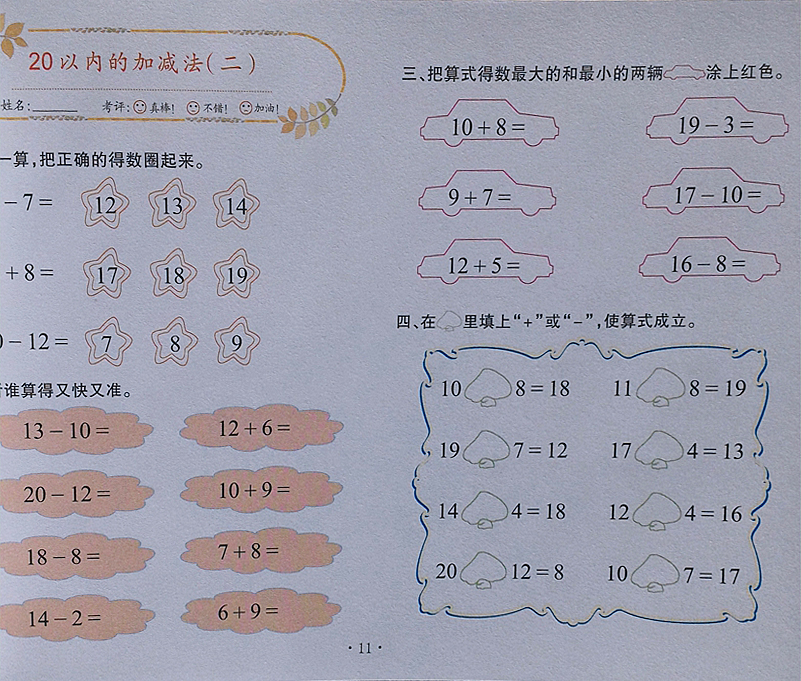 20以内的加减法(二)
姓名:______ 考评: 真棒! 不错! 加油!
一算,把正确的得数圈起来。
-7= 12 13 14
+8= 17 18 19
0-12= 7 8 9
谁算得又快又准。
13-10= 12+6=
20-12= 10+9=
18-8= 7+8=
14-2= 6+9=
三、把算式得数最大的和最小的两辆 涂上红色。
10+8= 19-3=
9+7= 17-10=
12+5= 16-8=
四、在 里填上“+”或“-”,使算式成立。
10 8=18 11 8=19
19 7=12 17 4=13
14 4=18 12 4=16
20 12=8 10 7=17
·11·